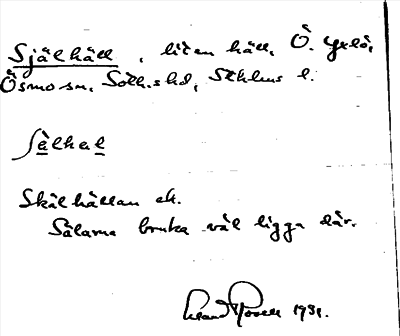 Själhäll, liten häll, Ö. Yxlö,
Ösmo sn, Soth.s hd, Sthlms l.
Sälhal
Skälhällan ek.
Sälarna bruka väl ligga där.
1931.